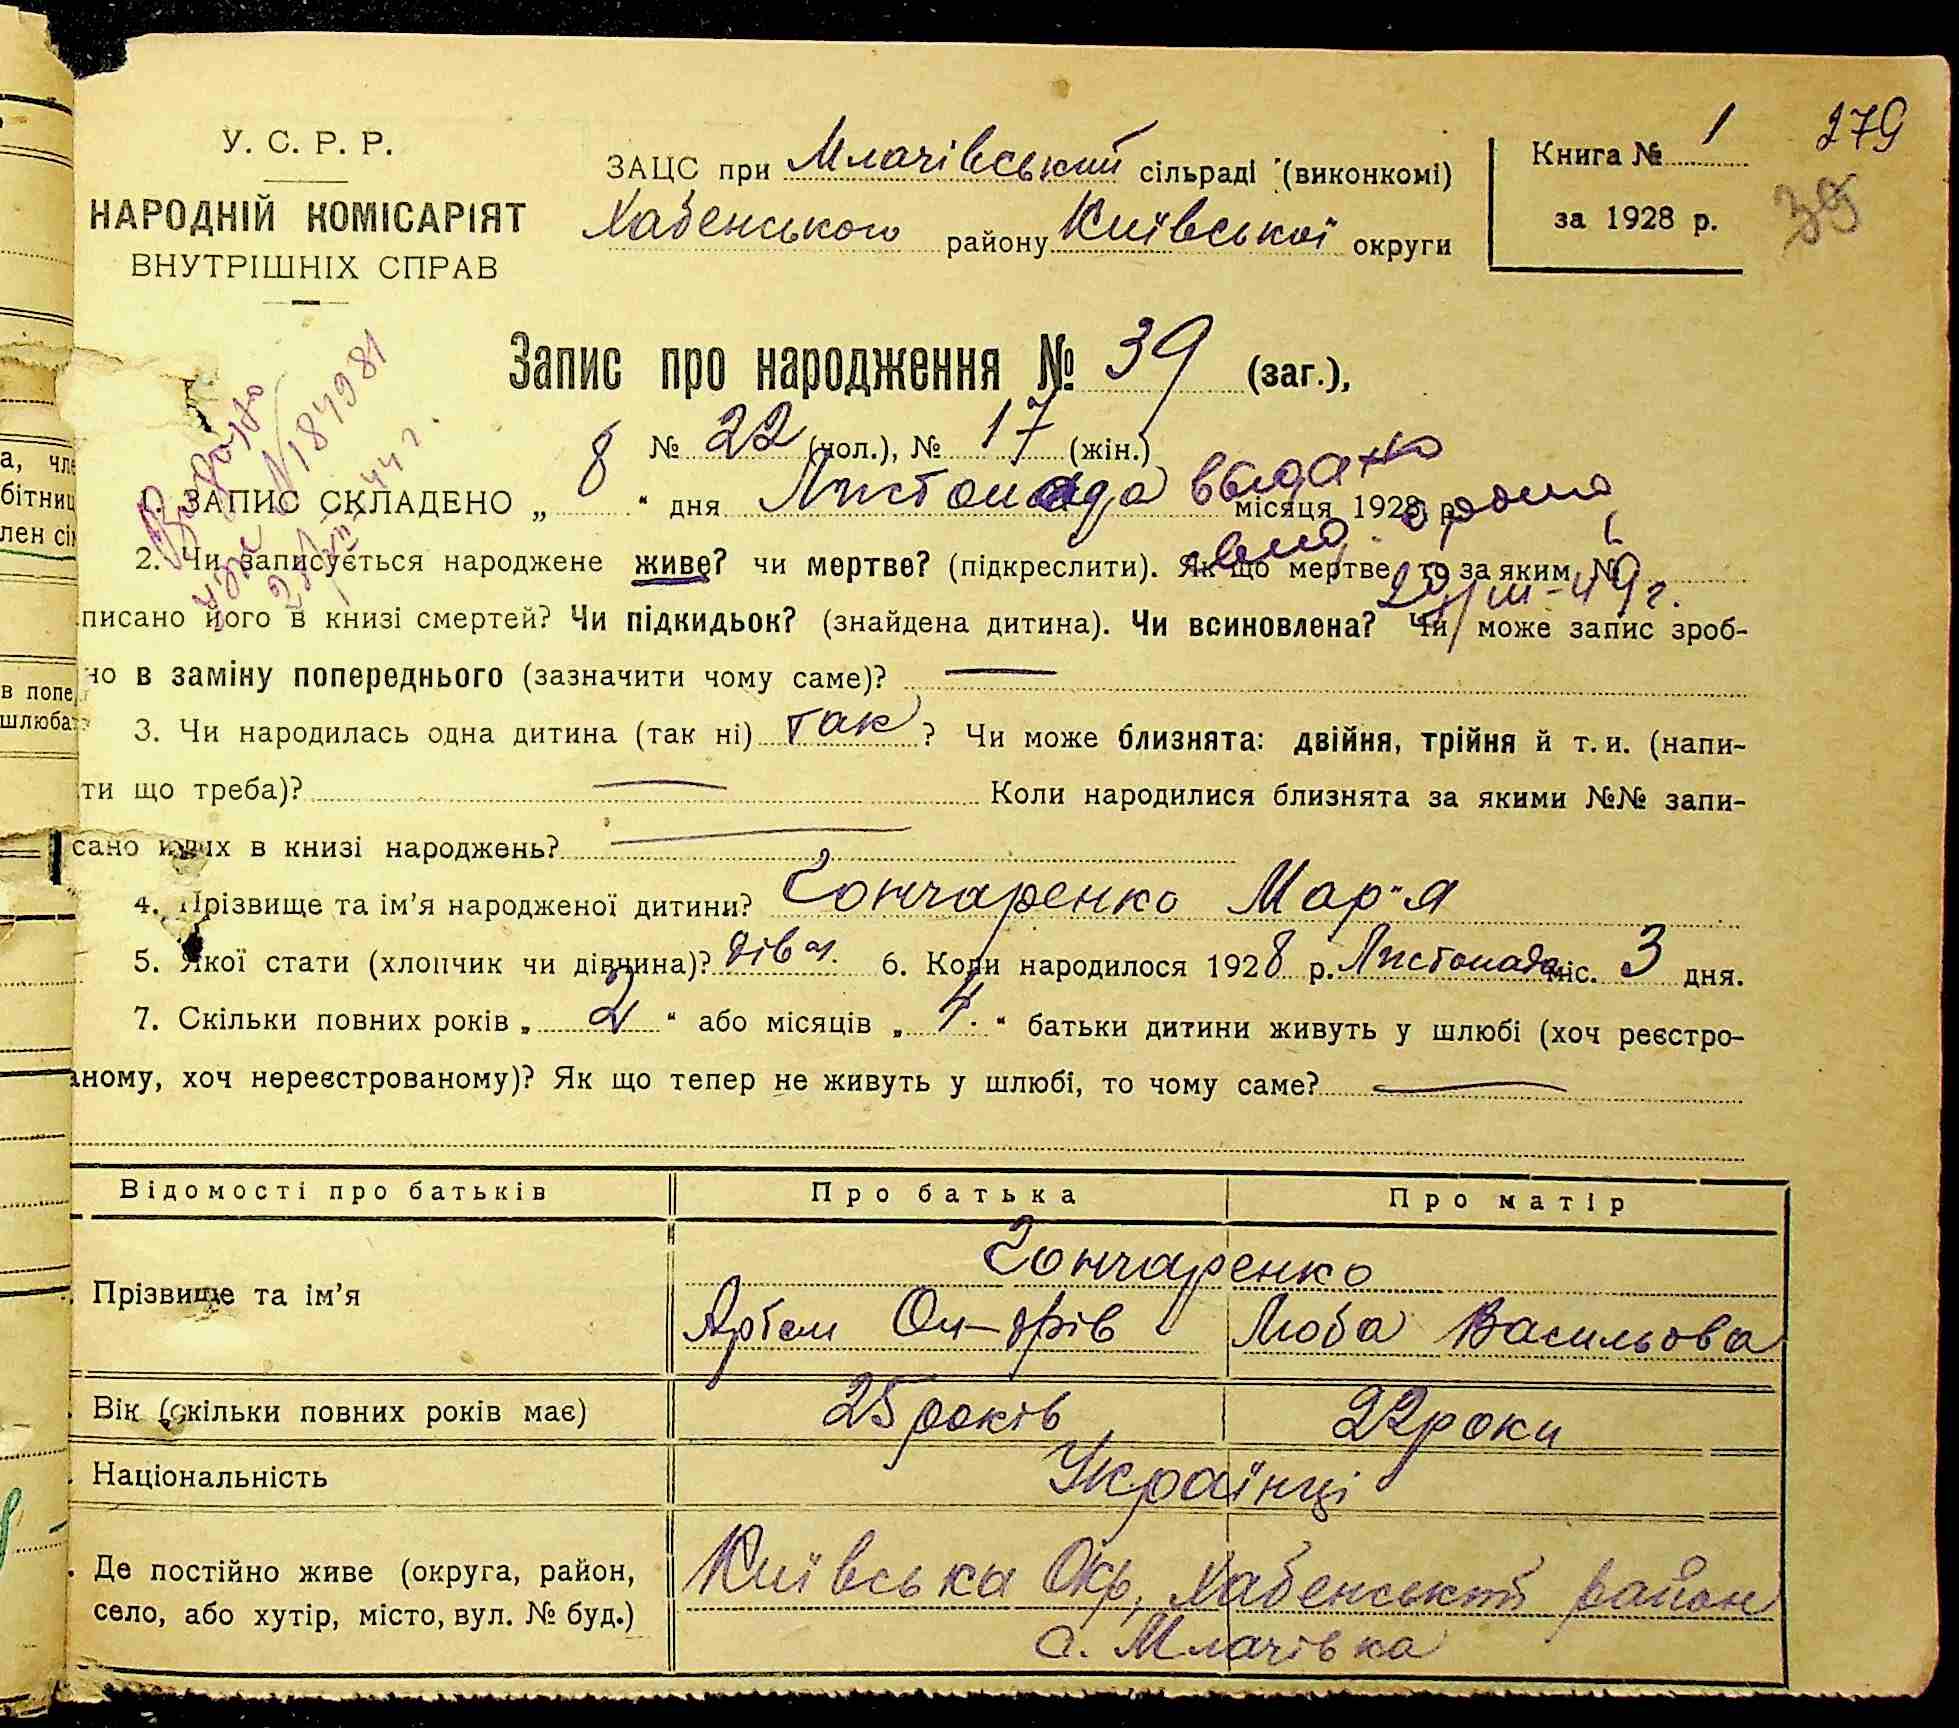 У. С. Р. Р.
НАРОДНІЙ КОМІСАРІЯТ
ВНУТРІШНІХ СПРАВ
ЗАЦС при Млачівський сільраді (виконкомі)
Хабенського району Київської округи
Книга № 1
за 1928 р.
279
39
Запис про народження № 39 (заг.),
№ 22 (чол.), № 17 (жін.)
Видано
N 184981
44 г.
1. ЗАПИС СКЛАДЕНО „ 8 “ дня Листопада місяця 1928 р.
выдано
29/III-49 г.
2. Чи записується народжене живе? чи мертве? (підкреслити). Як що мертве, то за яким №
писано його в книзі смертей? Чи підкидьок? (знайдена дитина). Чи всиновлена? Чи може запис зроб-
но в заміну попереднього (зазначити чому саме)? —
3. Чи народилась одна дитина (так ні) так ? Чи може близнята: двійня, трійня й т. и. (напи-
ти що треба)? — Коли народилися близнята за якими №№ запи-
сано їх в книзі народжень? —
4. Прізвище та ім’я народженої дитини? Гончаренко Мар"я
5. Якої стати (хлопчик чи дівчина)? дівч. 6. Коли народилося 1928 р. Листопада міс. 3 дня.
7. Скільки повних років „ 2 “ або місяців „ 4. “ батьки дитини живуть у шлюбі (хоч реєстро-
аному, хоч нереєстрованому)? Як що тепер не живуть у шлюбі, то чому саме? —
Відомості про батьків Про батька Про матір
Гончаренко
Прізвище та ім’я
Артем Люба Васильова
Вік (скільки повних років має) 25 років 22 роки
Національність Українці
Де постійно живе (округа, район,
село, або хутір, місто, вул. № буд.)
Київська Окр, Хабенський район
с. Млачівка
а, чле
бітниц
лен сім
в попе
шлюба